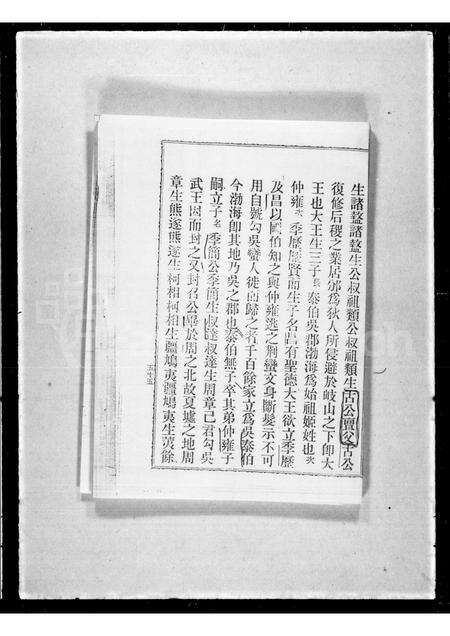 生諸盩諸盩生公叔祖類公叔祖類生古公亶父古公
復修后稷之業居邠為狄人所侵避於岐山之下即大
王也大王生三子長泰伯吳郡渤海為始祖姬姓也次
仲雍次季歷歷賢而生子名昌有聖德大王欲立季歷
及昌以國伯知之與仲雍逃之荆蠻文身斷髮示不可
用自號勾吳蠻人徙而歸之者千百餘家立為吳泰伯
今渤海即其地乃吳之郡也泰伯無子卒其弟仲雍子
嗣立子名季簡公季簡生叔達叔達生周章已君勾吳
武王因而封之又封名公畢於周之北故夏墟之地周
章生熊遂熊遂生柯相柯相生疆鳩夷疆鳩夷生莢餘
五十五